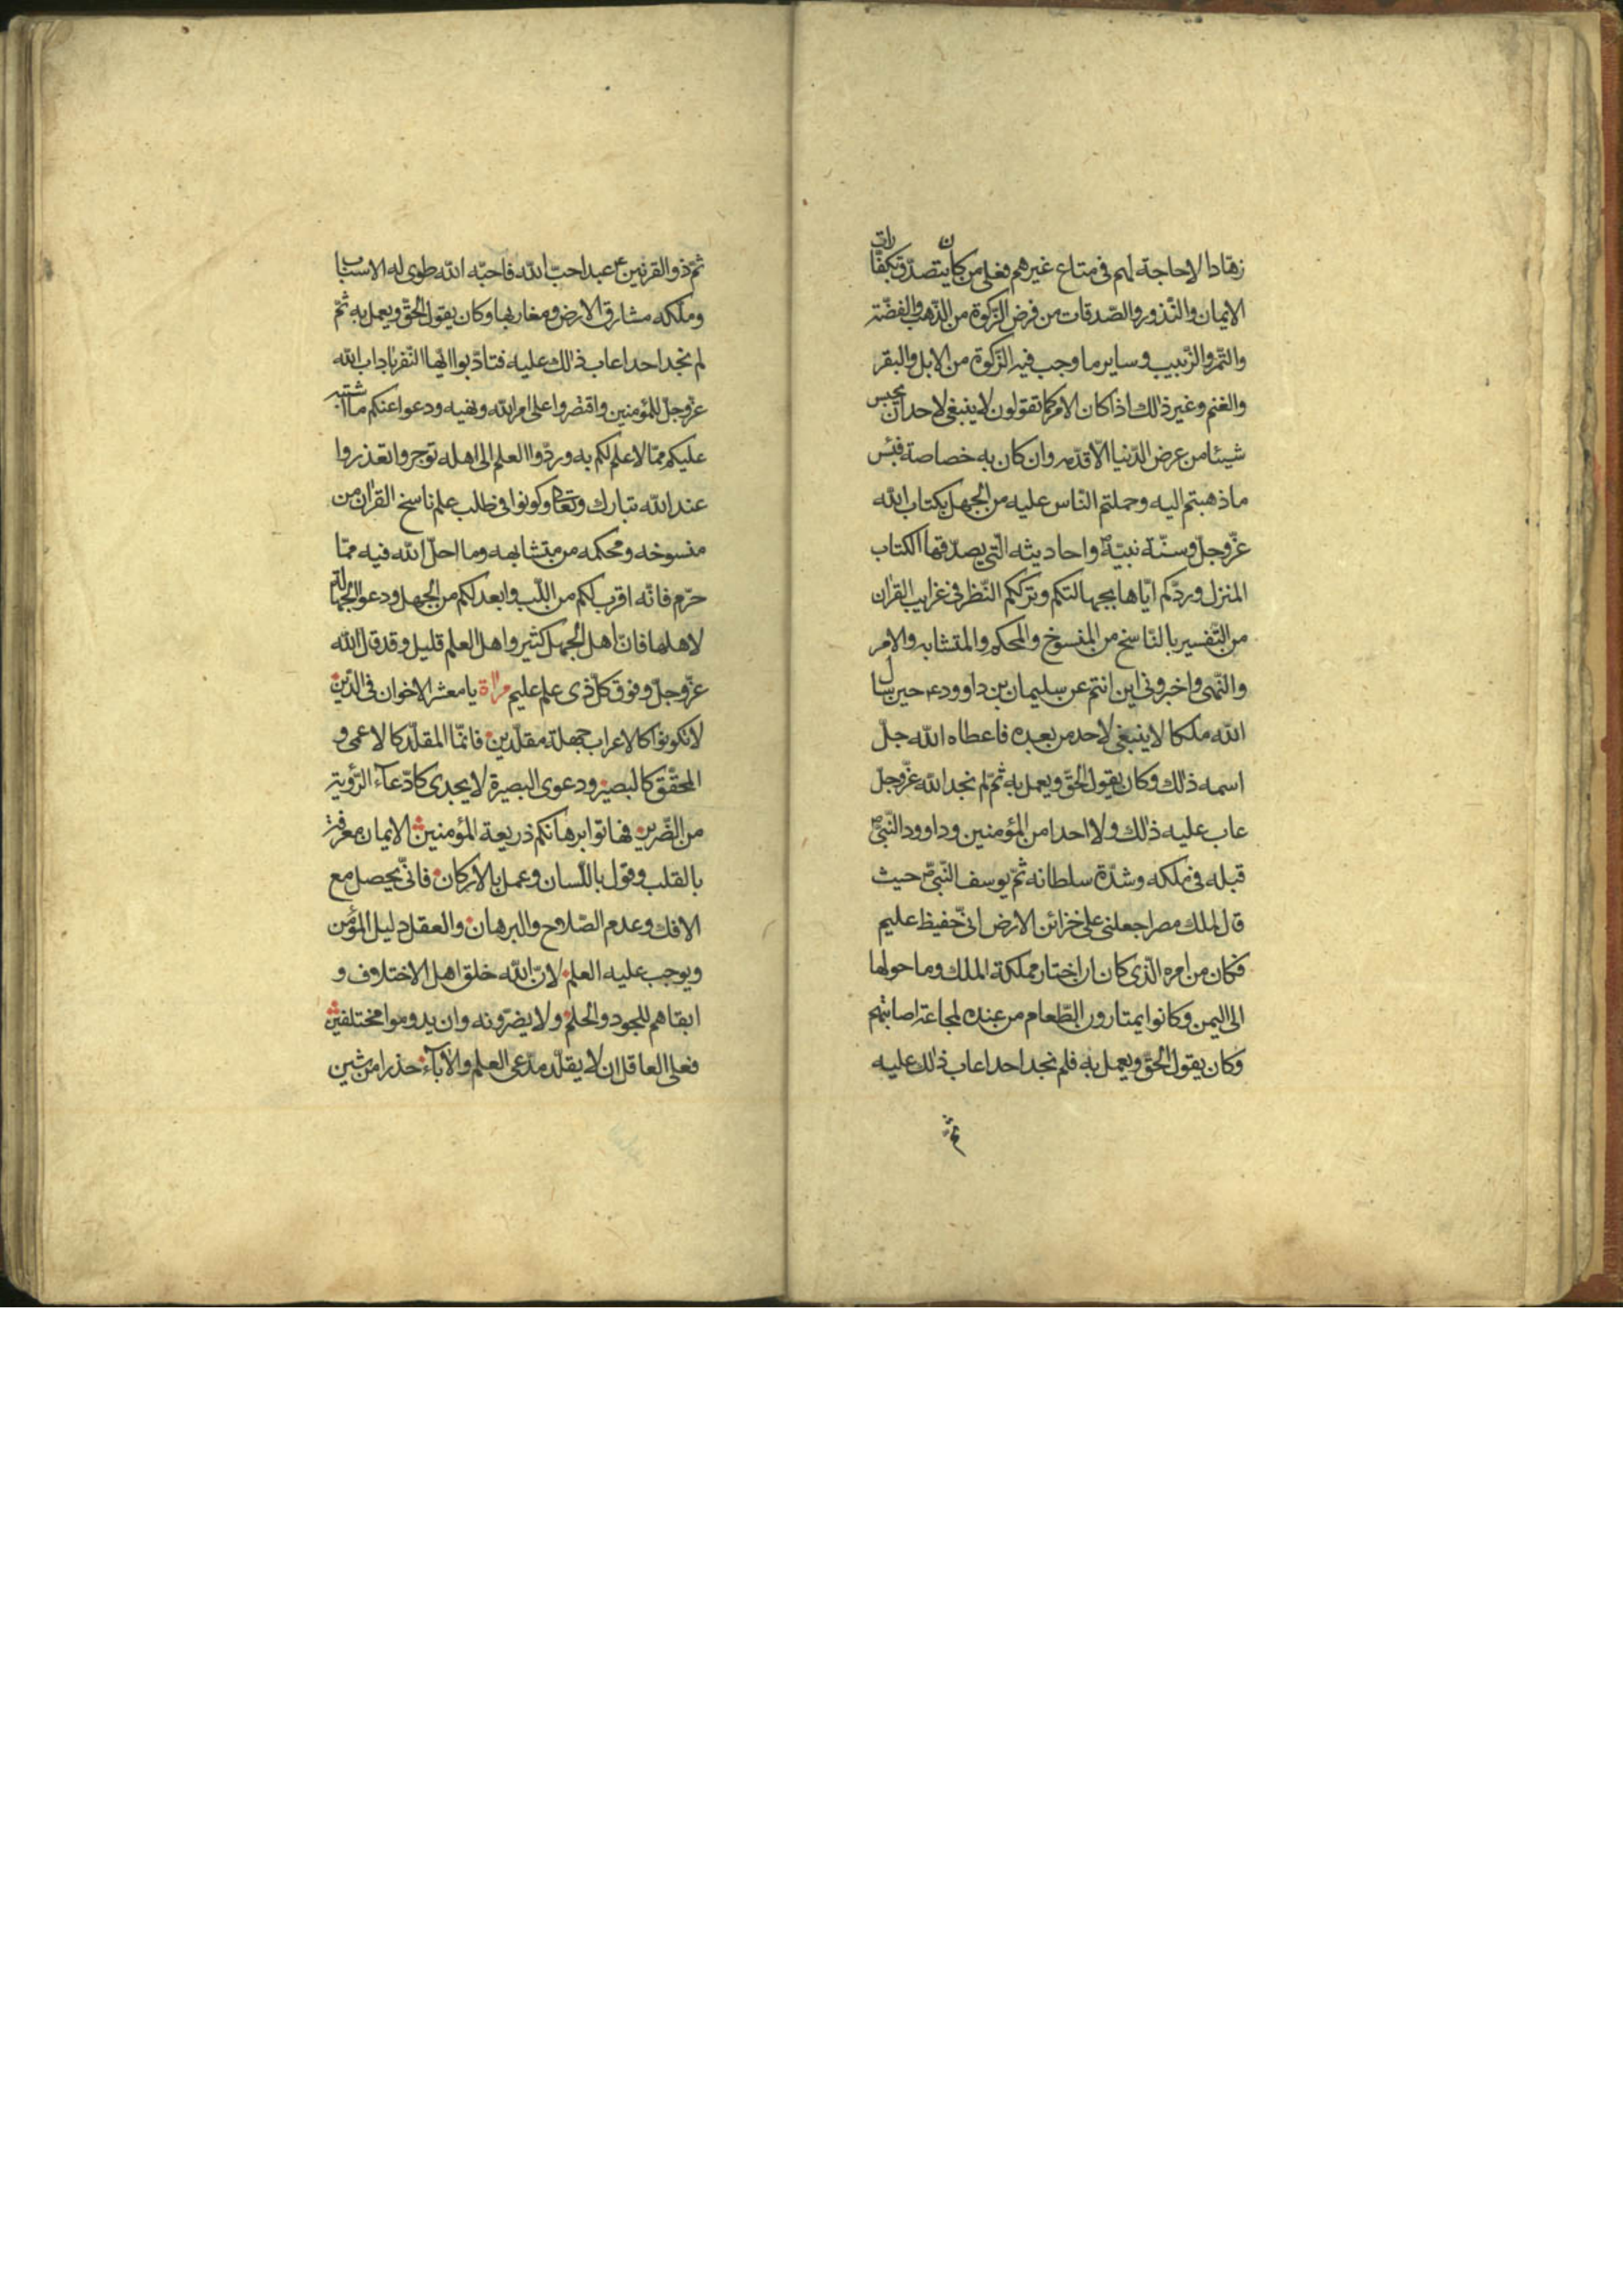 زهادا لا حاجة لهم فى متاع غيرهم فعلى من كان يتصدّق بكفّارات
الايمان والنّذور والصّدقات من فرض الزّكوة من الذّهب والفضّة
والتّمر والزّبيب وساير ما وجب فيه الزّكوة من الابل والبقر
والغنم وغير ذلك اذا كان الامر كما تقولون لا ينبغى لاحد ان يحبس
شيئا من عرض الدّنيا الّا قدّمه وان كان به خصاصة فبئس
ما ذهبتم اليه وحملتم النّاس عليه من الجهل بكتاب الله
عزّ وجلّ وسنّة نبيّه ص واحاديثه الّتى يصدّقها الكتاب
المنزل وردّكم ايّاها بجهالتكم وترككم النّظر فى غرايب القران
من التّفسير بالنّاسخ من المنسوخ والمحكم والمتشابه والامر
والنّهى واخبرونى اين انتم عن سليمان بن داوود ع حين سال
الله ملكا لا ينبغى لاحد من بعده فاعطاه الله جلّ
اسمه ذلك وكان يقول الحقّ ويعمل به ثمّ لم نجد الله عزّ وجلّ
عاب عليه ذلك ولا احدا من المؤمنين وداوود النّبىّ ص
قبله فى ملكه وشدّة سلطانه ثمّ يوسف النّبىّ ص حيث
قال لملك مصر اجعلنى على خزائن الارض انّى حفيظ عليم
فكان من امره الّذى كان ان اختار مملكة الملك وما حولها
الى اليمن وكانوا يمتارون الطّعام من عنده لمجاعة اصابتهم
وكان يقول الحقّ ويعمل به فلم نجد احدا عاب ذلك عليه
ثمّ
ثمّ ذو القرنين ع عبد احبّ الله فاحبّه الله طوى له الاسباب
وملّكه مشارق الارض ومغاربها وكان يقول الحقّ ويعمل به ثمّ
لم نجد احدا عاب ذلك عليه فتادّبوا ايّها النّفر باداب الله
عزّ وجلّ للمؤمنين واقتصروا على امر الله ونهيه ودعوا عنكم ما اشتبه
عليكم ممّا لا علم لكم به وردّوا العلم الى اهله توجروا وتعذروا
عند الله تبارك وتعالى وكونوا فى طلب علم ناسخ القران من
منسوخه ومحكمه من متشابهه وما احلّ الله فيه ممّا
حرّم فانّه اقرب لكم من اللّب وابعد لكم من الجهل ودعوا الجهالة
لاهلها فانّ اهل الجهل كثير واهل العلم قليل وقد قال الله
عزّ وجلّ وفوق كلّ ذى علم عليم مراة يا معشر الاخوان فى الدّين
لا تكونوا كالاعراب جهلة مقلّدين فانّما المقلّد كالاعمى و
المحقّق كالبصير ودعوى البصيرة لا يجدى كادّعآء الرّؤية
من الضّرير فهاتوا برهانكم ذريعة المؤمنين الايمان معرفة
بالقلب وقول باللّسان وعمل بالاركان فانّى يحصل مع
الافك وعدم الصّلاح والبرهان والعقل دليل المؤمن
ويوجب عليه العلم لانّ الله خلق اهل الاختلاف و
ابقاهم للجود والحلم ولا يضرّونه وان يدوموا مختلفين
فعلى العاقل ان لا يقلّد مدّعى العلم والآبآء حذرا من شين